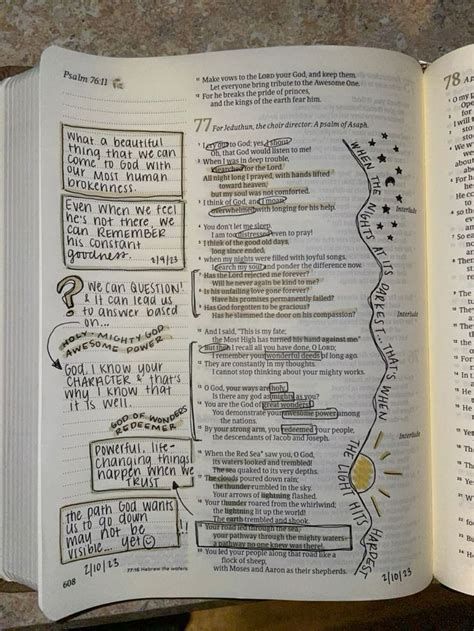 Psalm 76:11
11 Make vows to the LORD your God, and keep them.
Let everyone bring tribute to the Awesome One.
12 For he breaks the pride of princes,
and the kings of the earth fear him.
77 For Jeduthun, the choir director: A psalm of Asaph.
1 I cry out to God; yes, I shout.
Oh, that God would listen to me!
2 When I was in deep trouble,
I searched for the Lord.
All night long I prayed, with hands lifted
toward heaven,
but my soul was not comforted.
3 I think of God, and I moan,
overwhelmed with longing for his help.
Interlude
4 You don't let me sleep.
I am too distressed even to pray!
5 I think of the good old days,
long since ended,
6 when my nights were filled with joyful songs.
I search my soul and ponder the difference now.
7 Has the Lord rejected me forever?
Will he never again be kind to me?
8 Is his unfailing love gone forever?
Have his promises permanently failed?
9 Has God forgotten to be gracious?
Has he slammed the door on his compassion?
Interlude
10 And I said, "This is my fate;
the Most High has turned his hand against me."
11 But then I recall all you have done, O LORD;
I remember your wonderful deeds of long ago.
12 They are constantly in my thoughts.
I cannot stop thinking about your mighty works.
13 O God, your ways are holy.
Is there any god as mighty as you?
14 You are the God of great wonders!
You demonstrate your awesome power among
the nations.
15 By your strong arm, you redeemed your people,
the descendants of Jacob and Joseph.
Interlude
16 When the Red Sea* saw you, O God,
its waters looked and trembled!
The sea quaked to its very depths.
17 The clouds poured down rain;
the thunder rumbled in the sky.
Your arrows of lightning flashed.
18 Your thunder roared from the whirlwind;
the lightning lit up the world!
The earth trembled and shook.
19 Your road led through the sea,
your pathway through the mighty waters—
a pathway no one knew was there!
20 You led your people along that road like a
flock of sheep,
with Moses and Aaron as their shepherds.
77:16 Hebrew the waters.
608
what a beautiful
thing that we can
come to God with
our most human
brokenness.
Even when we feel
he's not there, we
can REMEMBER
His constant
goodness.
2/9/23
?
We can QUESTION!
& it can lead us
to answer based
on...
HOLY. MIGHTY GOD
AWESOME POWER
God, I know your
CHARACTER & that's
why I know that
it is well.
GOD OF WONDERS
REDEEMER
Powerful, life-
changing things
happen when we
TRUST
the path God wants
us to go down
may not be
visible... yet
2/10/23
WHEN THE NIGHTS AT ITS DARKEST... THAT'S WHEN
THE LIGHT HITS HARDEST
2/10/23
78